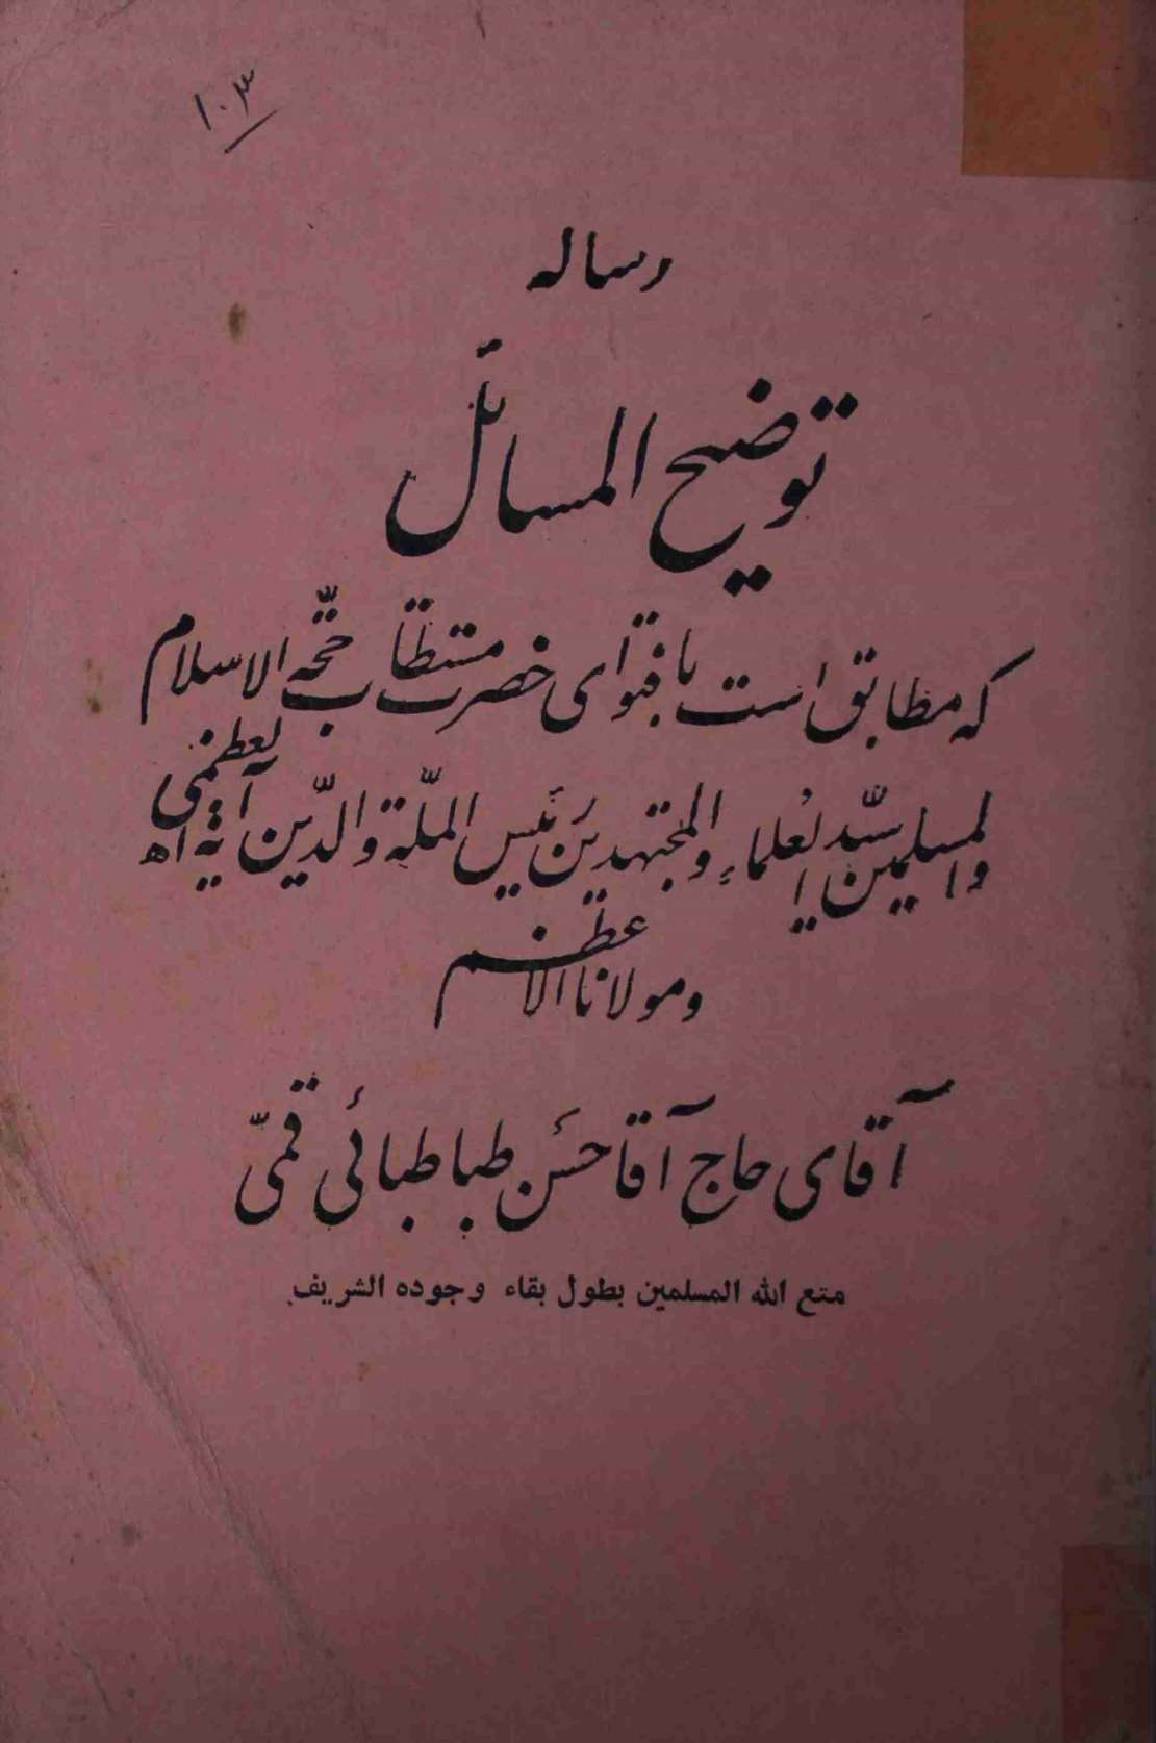 ۱۰۳
رساله
توضیح المسائل
که مطابق است با فتوای حضرت مستطاب حجّة الاسلام
والمسلمین سیّد العلماء والمجتهدین رئیس الملّة والدّین آیة الله العظمی
ومولانا الاعظم
آقای حاج آقا حسن طباطبائی قمّی
متع الله المسلمین بطول بقاء وجوده الشریف